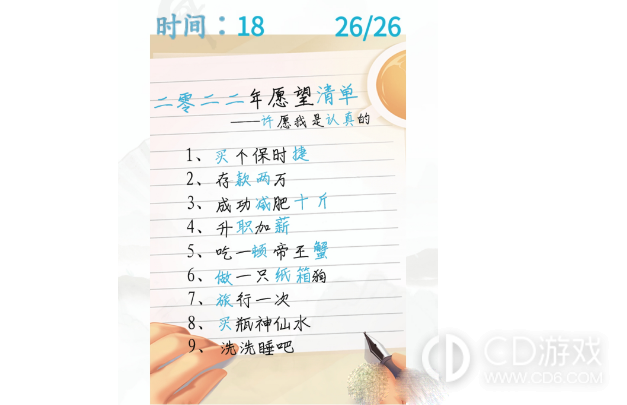 时间：18 26/26
二零二二年愿望清单
——许愿我是认真的
1、买个保时捷
2、存款两万
3、成功减肥十斤
4、升职加薪
5、吃一顿帝王蟹
6、做一只纸箱狗
7、旅行一次
8、买瓶神仙水
9、洗洗睡吧
CD游戏
WWW.CD6.COM